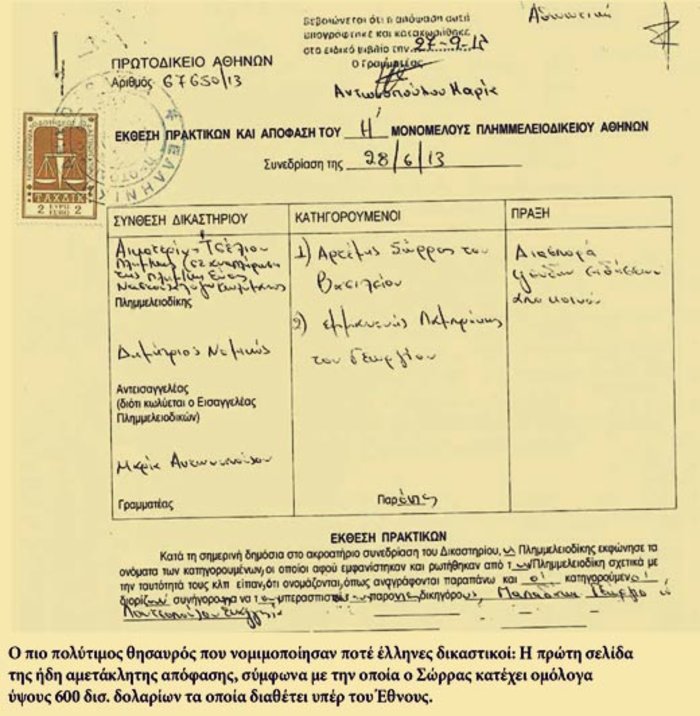 Βεβαιώνεται ότι η απόφαση αυτή
υπογράφηκε και καταχωρήθηκε
στο ειδικό βιβλίο την 27-9-13
Ο Γραμματέας
Αντωνοπούλου Μαρία
Αθωωτική
ΠΡΩΤΟΔΙΚΕΙΟ ΑΘΗΝΩΝ
Αριθμός 67650/13
ΕΛΛΗΝΙΚ
ΤΑΧΔΙΚ
2 ΕΥΡΩ EURO 2
ΕΚΘΕΣΗ ΠΡΑΚΤΙΚΩΝ ΚΑΙ ΑΠΟΦΑΣΗ ΤΟΥ Η' ΜΟΝΟΜΕΛΟΥΣ ΠΛΗΜΜΕΛΕΙΟΔΙΚΕΙΟΥ ΑΘΗΝΩΝ
Συνεδρίαση της 28/6/13
ΣΥΝΘΕΣΗ ΔΙΚΑΣΤΗΡΙΟΥ
Πλημμελειοδίκης
Δημήτριος
Αντεισαγγελέας
(διότι κωλύεται ο Εισαγγελέας
Πλημμελειοδικών)
Μαρία Αντωνοπούλου
Γραμματέας
ΚΑΤΗΓΟΡΟΥΜΕΝΟΙ
1) Αρτέμης Σώρρας του
Βασιλείου
2) Εμμανουήλ Λαμπράκης
του Γεωργίου
Παρόντες
ΠΡΑΞΗ
Διασπορά
ψευδών ειδήσεων
από κοινού
ΕΚΘΕΣΗ ΠΡΑΚΤΙΚΩΝ
Κατά τη σημερινή δημόσια στο ακροατήριο συνεδρίαση του Δικαστηρίου, η Πλημμελειοδίκης εκφώνησε τα
ονόματα των κατηγορουμένων, οι οποίοι αφού εμφανίστηκαν και ρωτήθηκαν από την Πλημμελειοδίκη σχετικά με
την ταυτότητά τους κλπ είπαν, ότι ονομάζονται, όπως αναγράφονται παραπάνω και οι κατηγορούμενοι
διορίζουν συνήγορο να τους υπερασπιστεί παρόντες δικηγόρους,
Ο πιο πολύτιμος θησαυρός που νομιμοποίησαν ποτέ έλληνες δικαστικοί: Η πρώτη σελίδα
της ήδη αμετάκλητης απόφασης, σύμφωνα με την οποία ο Σώρρας κατέχει ομόλογα
ύψους 600 δισ. δολαρίων τα οποία διαθέτει υπέρ του Έθνους.